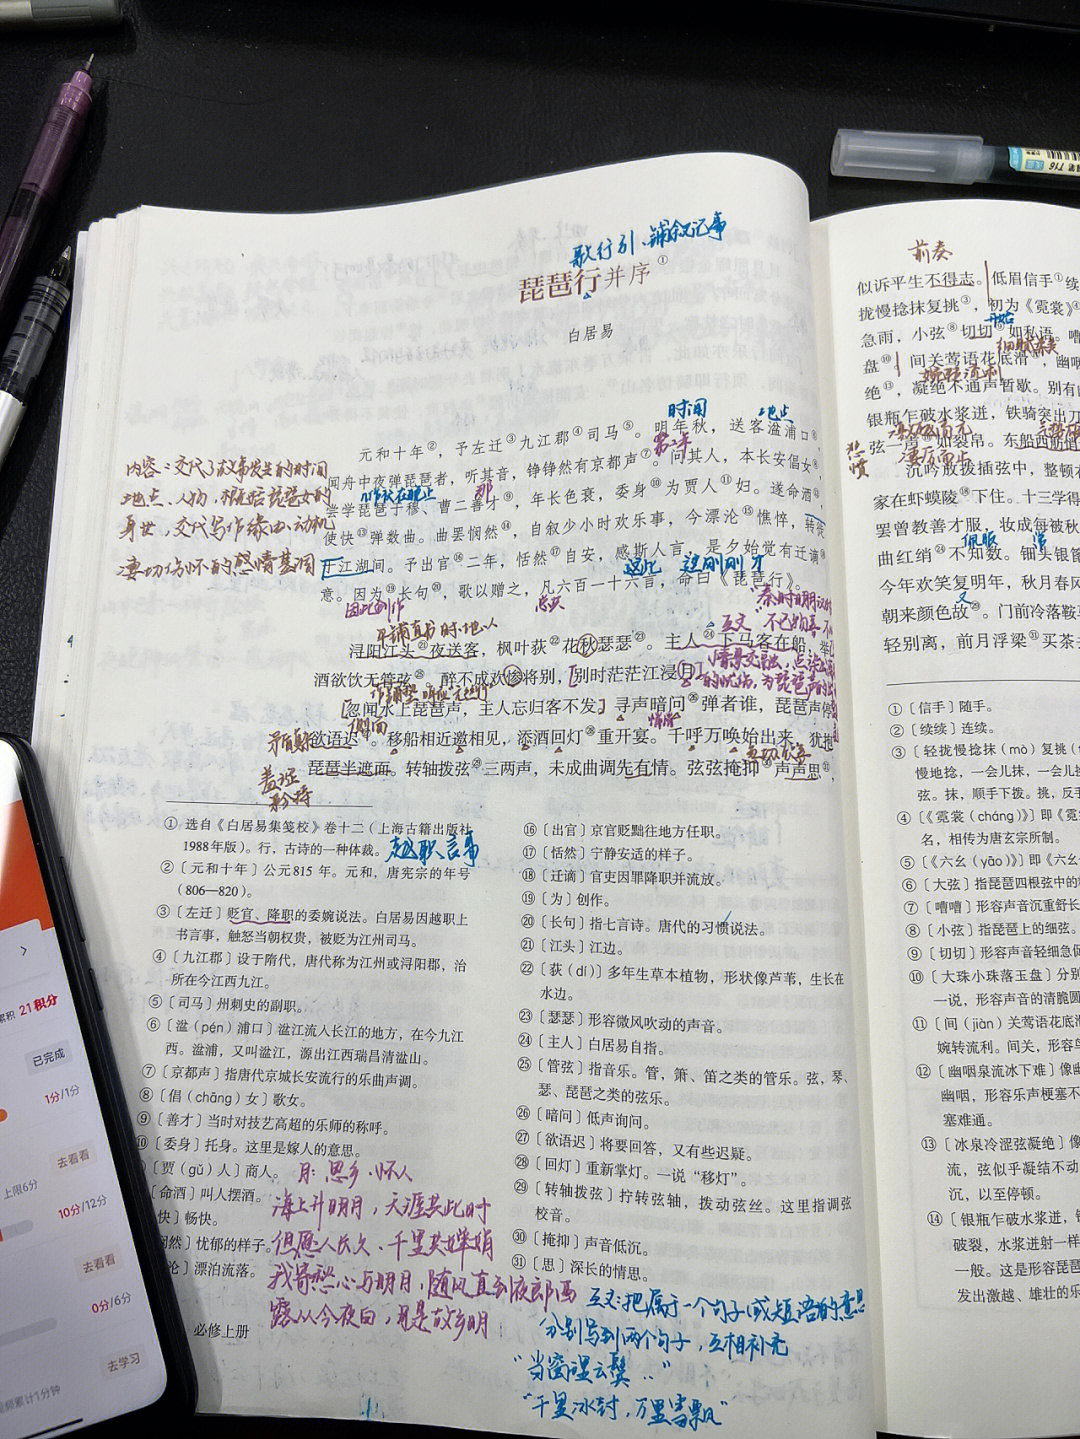 歌行引、铺叙记事
琵琶行并序①
白居易
时间
地点
元和十年②，予左迁③九江郡④司马⑤。明年秋，送客湓浦口⑥，
第二年
闻舟中夜弹琵琶者，听其音，铮铮然有京都声⑦。问其人，本长安倡女⑧，
尝学琵琶于穆、曹二善才⑨，年长色衰，委身⑩为贾人⑪妇。遂命酒⑫，
使快⑬弹数曲。曲罢悯然⑭，自叙少小时欢乐事，今漂沦⑮憔悴，转徙
于江湖间。予出官⑯二年，恬然⑰自安，感斯人言，是夕始觉有迁谪⑱
意。因为⑲长句⑳，歌以赠之，凡六百一十六言，命曰《琵琶行》。
因此创作
总共
内容：交代了故事发生的时间
地点、人物，概括琵琶女的
身世，交代写作缘由、动机
凄切伤怀的感情基调
浔阳江头㉑夜送客，枫叶荻㉒花秋瑟瑟㉓。主人㉔下马客在船，举
酒欲饮无管弦㉕。醉不成欢惨将别，别时茫茫江浸月。
忽闻水上琵琶声，主人忘归客不发。寻声暗问㉖弹者谁，琵琶声停
欲语迟㉗。移船相近邀相见，添酒回灯㉘重开宴。千呼万唤始出来，犹抱
琵琶半遮面。转轴拨弦㉙三两声，未成曲调先有情。弦弦掩抑㉚声声思㉛，
① 选自《白居易集笺校》卷十二（上海古籍出版社
1988年版）。行，古诗的一种体裁。
越职言事
②〔元和十年〕公元815 年。元和，唐宪宗的年号
（806—820）。
③〔左迁〕贬官、降职的委婉说法。白居易因越职上
书言事，触怒当朝权贵，被贬为江州司马。
④〔九江郡〕设于隋代，唐代称为江州或浔阳郡，治
所在今江西九江。
⑤〔司马〕州刺史的副职。
⑥〔湓（pén）浦口〕湓江流入长江的地方，在今九江
西。湓浦，又叫湓江，源出江西瑞昌清湓山。
⑦〔京都声〕指唐代京城长安流行的乐曲声调。
⑧〔倡（chāng）女〕歌女。
⑨〔善才〕当时对技艺高超的乐师的称呼。
⑩〔委身〕托身。这里是嫁人的意思。
〔贾（gǔ）人〕商人。
命酒〕叫人摆酒。
快〕畅快。
悯然〕忧郁的样子。
沦〕漂泊流落。
月：思乡、怀人
海上升明月，天涯共此时
但愿人长久、千里共婵娟
我寄愁心与明月，随风直到夜郎西
露从今夜白，月是故乡明
必修上册
⑯〔出官〕京官贬黜往地方任职。
⑰〔恬然〕宁静安适的样子。
⑱〔迁谪〕官吏因罪降职并流放。
⑲〔为〕创作。
⑳〔长句〕指七言诗。唐代的习惯说法。
㉑〔江头〕江边。
㉒〔荻（dí）〕多年生草本植物，形状像芦苇，生长在
水边。
㉓〔瑟瑟〕形容微风吹动的声音。
㉔〔主人〕白居易自指。
㉕〔管弦〕指音乐。管，箫、笛之类的管乐。弦，琴、
瑟、琵琶之类的弦乐。
㉖〔暗问〕低声询问。
㉗〔欲语迟〕将要回答，又有些迟疑。
㉘〔回灯〕重新掌灯。一说“移灯”。
㉙〔转轴拨弦〕拧转弦轴，拨动弦丝。这里指调弦
校音。
㉚〔掩抑〕声音低沉。
㉛〔思〕深长的情思。
互文：把属于一个句子（或短语）的意思
分别写到两个句子，互相补充
“当窗理云鬓‥”
“千里冰封，万里雪飘”
前奏
似诉平生不得志。低眉信手①续
拢慢捻抹复挑③，初为《霓裳》④
急雨，小弦⑧切切⑨如私语。嘈
盘⑩。间关莺语花底滑⑪，幽咽
婉转流利
绝⑬，凝绝不通声暂歇。别有
银瓶乍破水浆迸，铁骑突出刀
弦一声⑯如裂帛。东船西舫悄
悲愤
沉吟放拨插弦中，整顿衣
家在虾蟆陵⑱下住。十三学得
罢曾教善才服，妆成每被秋
佩服
曲红绡㉔不知数。钿头银篦
今年欢笑复明年，秋月春风
朝来颜色故㉙。门前冷落鞍
轻别离，前月浮梁㉚买茶
①〔信手〕随手。
②〔续续〕连续。
③〔轻拢慢捻抹（mò）复挑（
慢地捻，一会儿抹，一会儿
弦。抹，顺手下拨。挑，反手
④〔《霓裳（cháng）》〕即《霓
名，相传为唐玄宗所制。
⑤〔《六幺（yāo）》〕即《六幺
⑥〔大弦〕指琵琶四根弦中的
⑦〔嘈嘈〕形容声音沉重舒长
⑧〔小弦〕指琵琶上的细弦。
⑨〔切切〕形容声音轻细急促
⑩〔大珠小珠落玉盘〕分别
一说，形容声音的清脆圆
⑪〔间（jiàn）关莺语花底滑
婉转流利。间关，形容鸟
⑫〔幽咽泉流冰下难〕像幽
幽咽，形容乐声梗塞不
塞难通。
⑬〔冰泉冷涩弦凝绝〕像
流，弦似乎凝结不动
沉，以至停顿。
⑭〔银瓶乍破水浆迸，铁
破裂，水浆迸射一样
一般。这是形容琵琶
发出激越、雄壮的乐
累积 21积分
已完成
1分/1分
去看看
上限6分
10分/12分
去看看
0分/6分
去学习
视频累计1分钟
T16